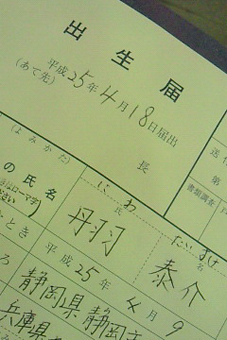 出生届
平成25年4月18日届出
(あて先)
長
(よみかた)
にわ たいすけ
の氏名
氏 名
丹羽 泰介
とき
平成25年4月9
静岡県静岡市
兵庫県
書類調査
送
第